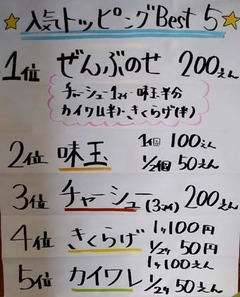 ☆人気トッピングBest 5☆
1位 ぜんぶのせ 200えん
チャーシュー1マイ・味玉半分
カイワレ(半)・きくらげ(半)
2位 味玉 1個 100えん
1/2個 50えん
3位 チャーシュー(3マイ) 200えん
4位 きくらげ 1ヶ 100円
1/2ヶ 50円
5位 カイワレ 1ヶ 100えん
1/2ヶ 50えん